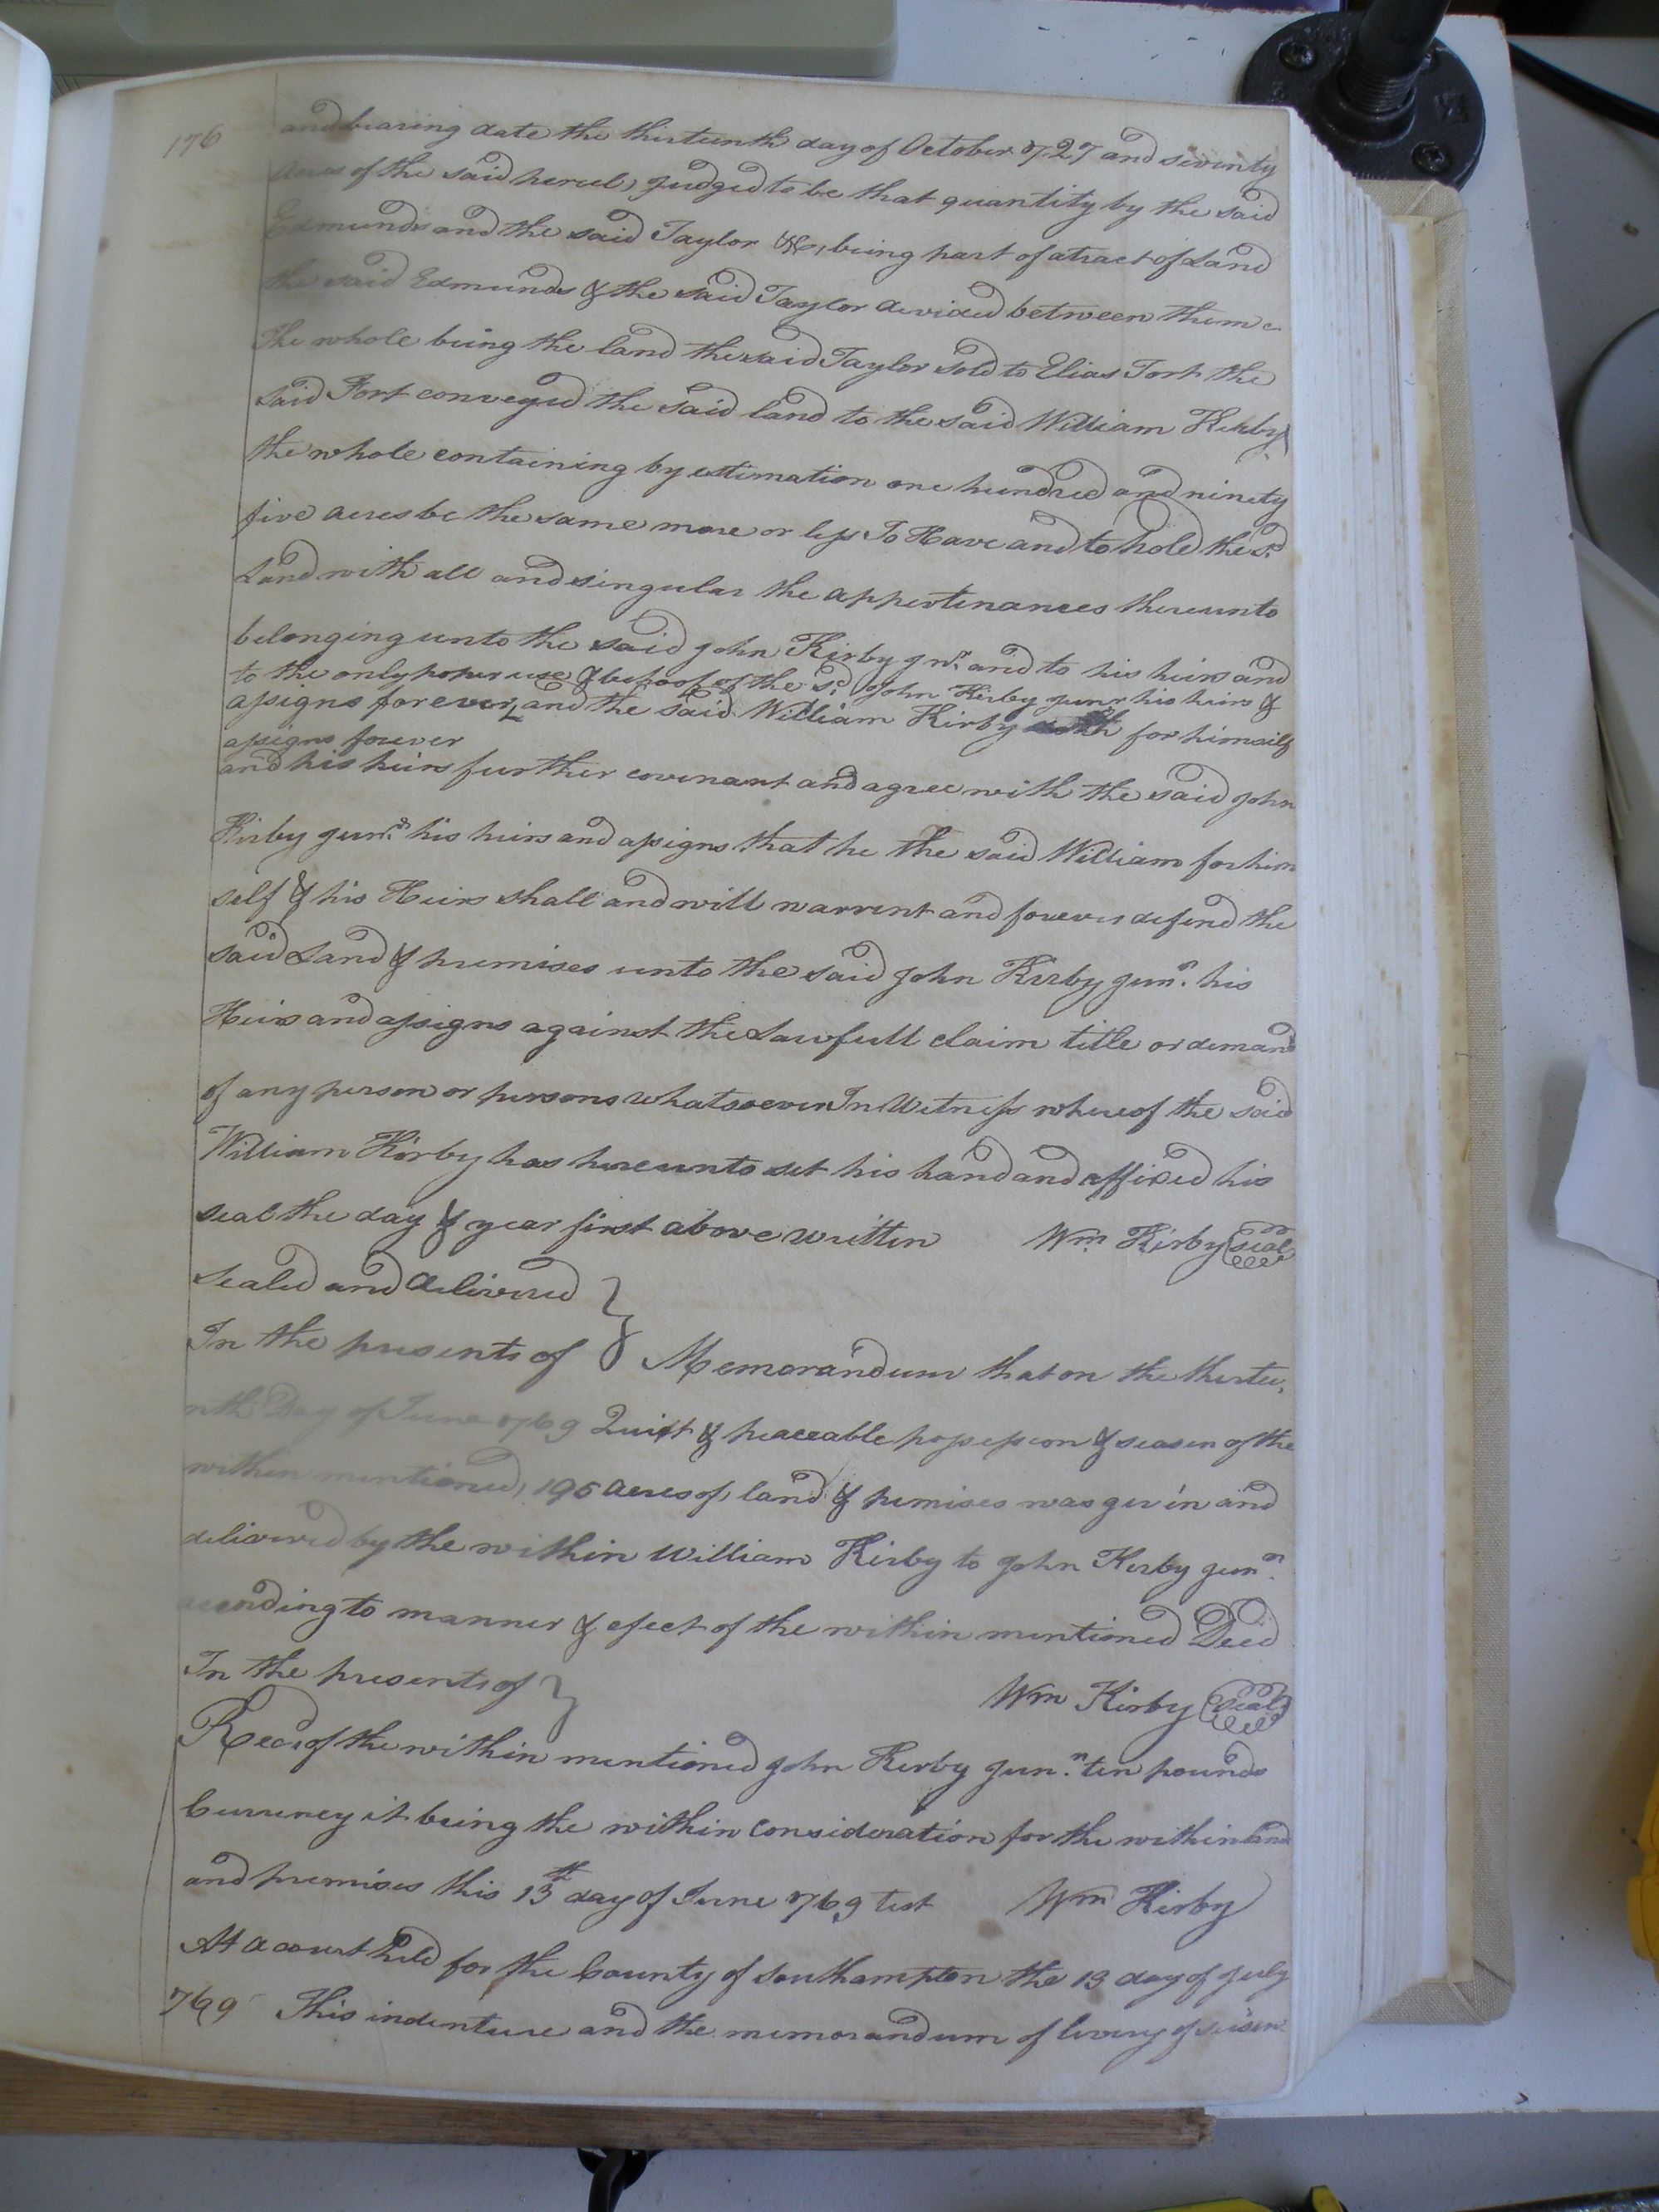 176
and bearing date the thirteenth day of October 1727 and seventy
acres of the said percel, judged to be that quantity by the said
Edmunds and the said Taylor &c, being part of a tract of Land
the said Edmunds & the said Taylor devided between them
The whole being the land the said Taylor sold to Elias Fort the
said Fort conveyed the said land to the said William Kirby
the whole containing by estimation one hundred and ninety
five acres be the same more or less To Have and to hold the sd
Land with all and singular the appertenances thereunto
belonging unto the said John Kirby Jnr and to his heirs and
to the only proper use & behoof of the sd John Kirby junr his heirs &
assigns forever, and the said William Kirby doth for himself
assigns forever
and his heirs further covenant and agree with the said John
Kirby junr his heirs and assigns that he the said William for him
self & his Heirs shall and will warrent and forever defend the
said Land & premises unto the said John Kirby junr his
Heirs and assigns against the Lawfull claim title or demand
of any person or persons whatsoever In Witness whereof the said
William Kirby has hereunto set his hand and affixed his
seal the day & year first above written Wm Kirby (seal)
Sealed and delivered
In the presents of Memorandum that on the thirtee,
nth Day of June 1769 Quiet & peaceable possession & seasen of the
within mentioned, 195 acres of land & premises was given and
delivered by the within William Kirby to John Kirby junr
according to manner & efect of the within mentioned Deed
In the presents of Wm Kirby (seal)
Recd of the within mentioned John Kirby junr ten pounds
Currency it being the within consideration for the within land
and premises this 13th day of June 1769 test Wm Kirby
At a court held for the County of Southampton the 13 day of July
1769 This indenture and the memorandum of livery of seisen